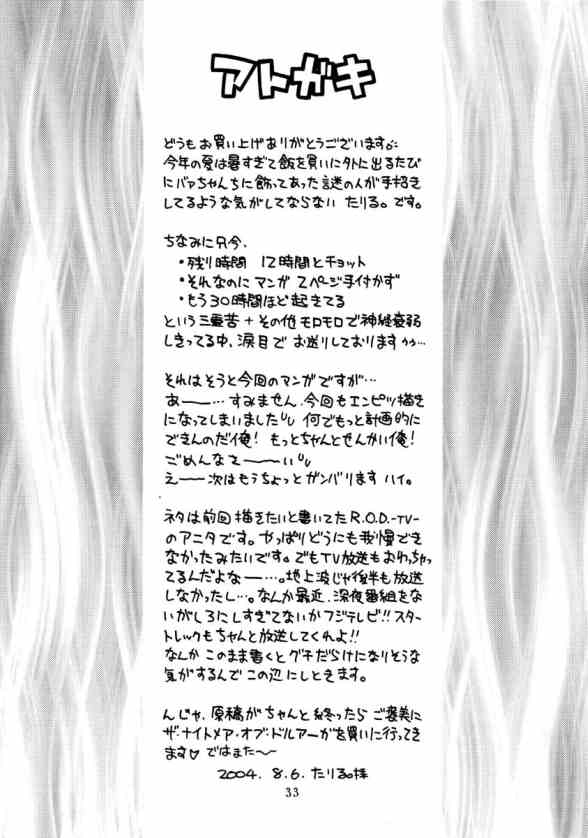 アトガキ
どうもお買い上げありがとうございます♪
今年の夏は暑すぎて飯を買いに外に出るたび
にバァちゃんちに飾ってあった謎の人が手招き
してるような気がしてならない たりる。です。
ちなみに只今、
・残り時間 12時間とチョット
・それなのにマンガ 2ページ手付かず
・もう30時間ほど起きてる
という三重苦+その他モロモロで神経衰弱
しきってる中、涙目でお送りしております
それはそうと今回のマンガですが…
あー——…すみません、今回もエンピツ描き
になってしまいました 何でもっと計画的に
できんのだ俺! もっとちゃんとせんかい俺!
ごめんなさ——い
えー——次はもうちょっとガンバリます ハイ。
ネタは前回描きたいと書いてたR.O.D.-TV-
のアニタです。やっぱりどうにも我慢でき
なかったみたいです。でもTV放送もおわっちゃっ
てるんだよなー——…。地上波じゃ後半も放送
しなかったし…。なんか最近、深夜番組をな
いがしろにしすぎてないかフジテレビ!!スター
トレックもちゃんと放送してくれよ!!
なんかこのまま書くとグチだらけになりそうな
気がするんでこの辺にしときます。
んじゃ、原稿がちゃんと終ったらご褒美に
ザ・ナイトメア・オブ・ドルアーガを買いに行ってき
ます♡ ではまた〜
2004. 8.6. たりる。様
33